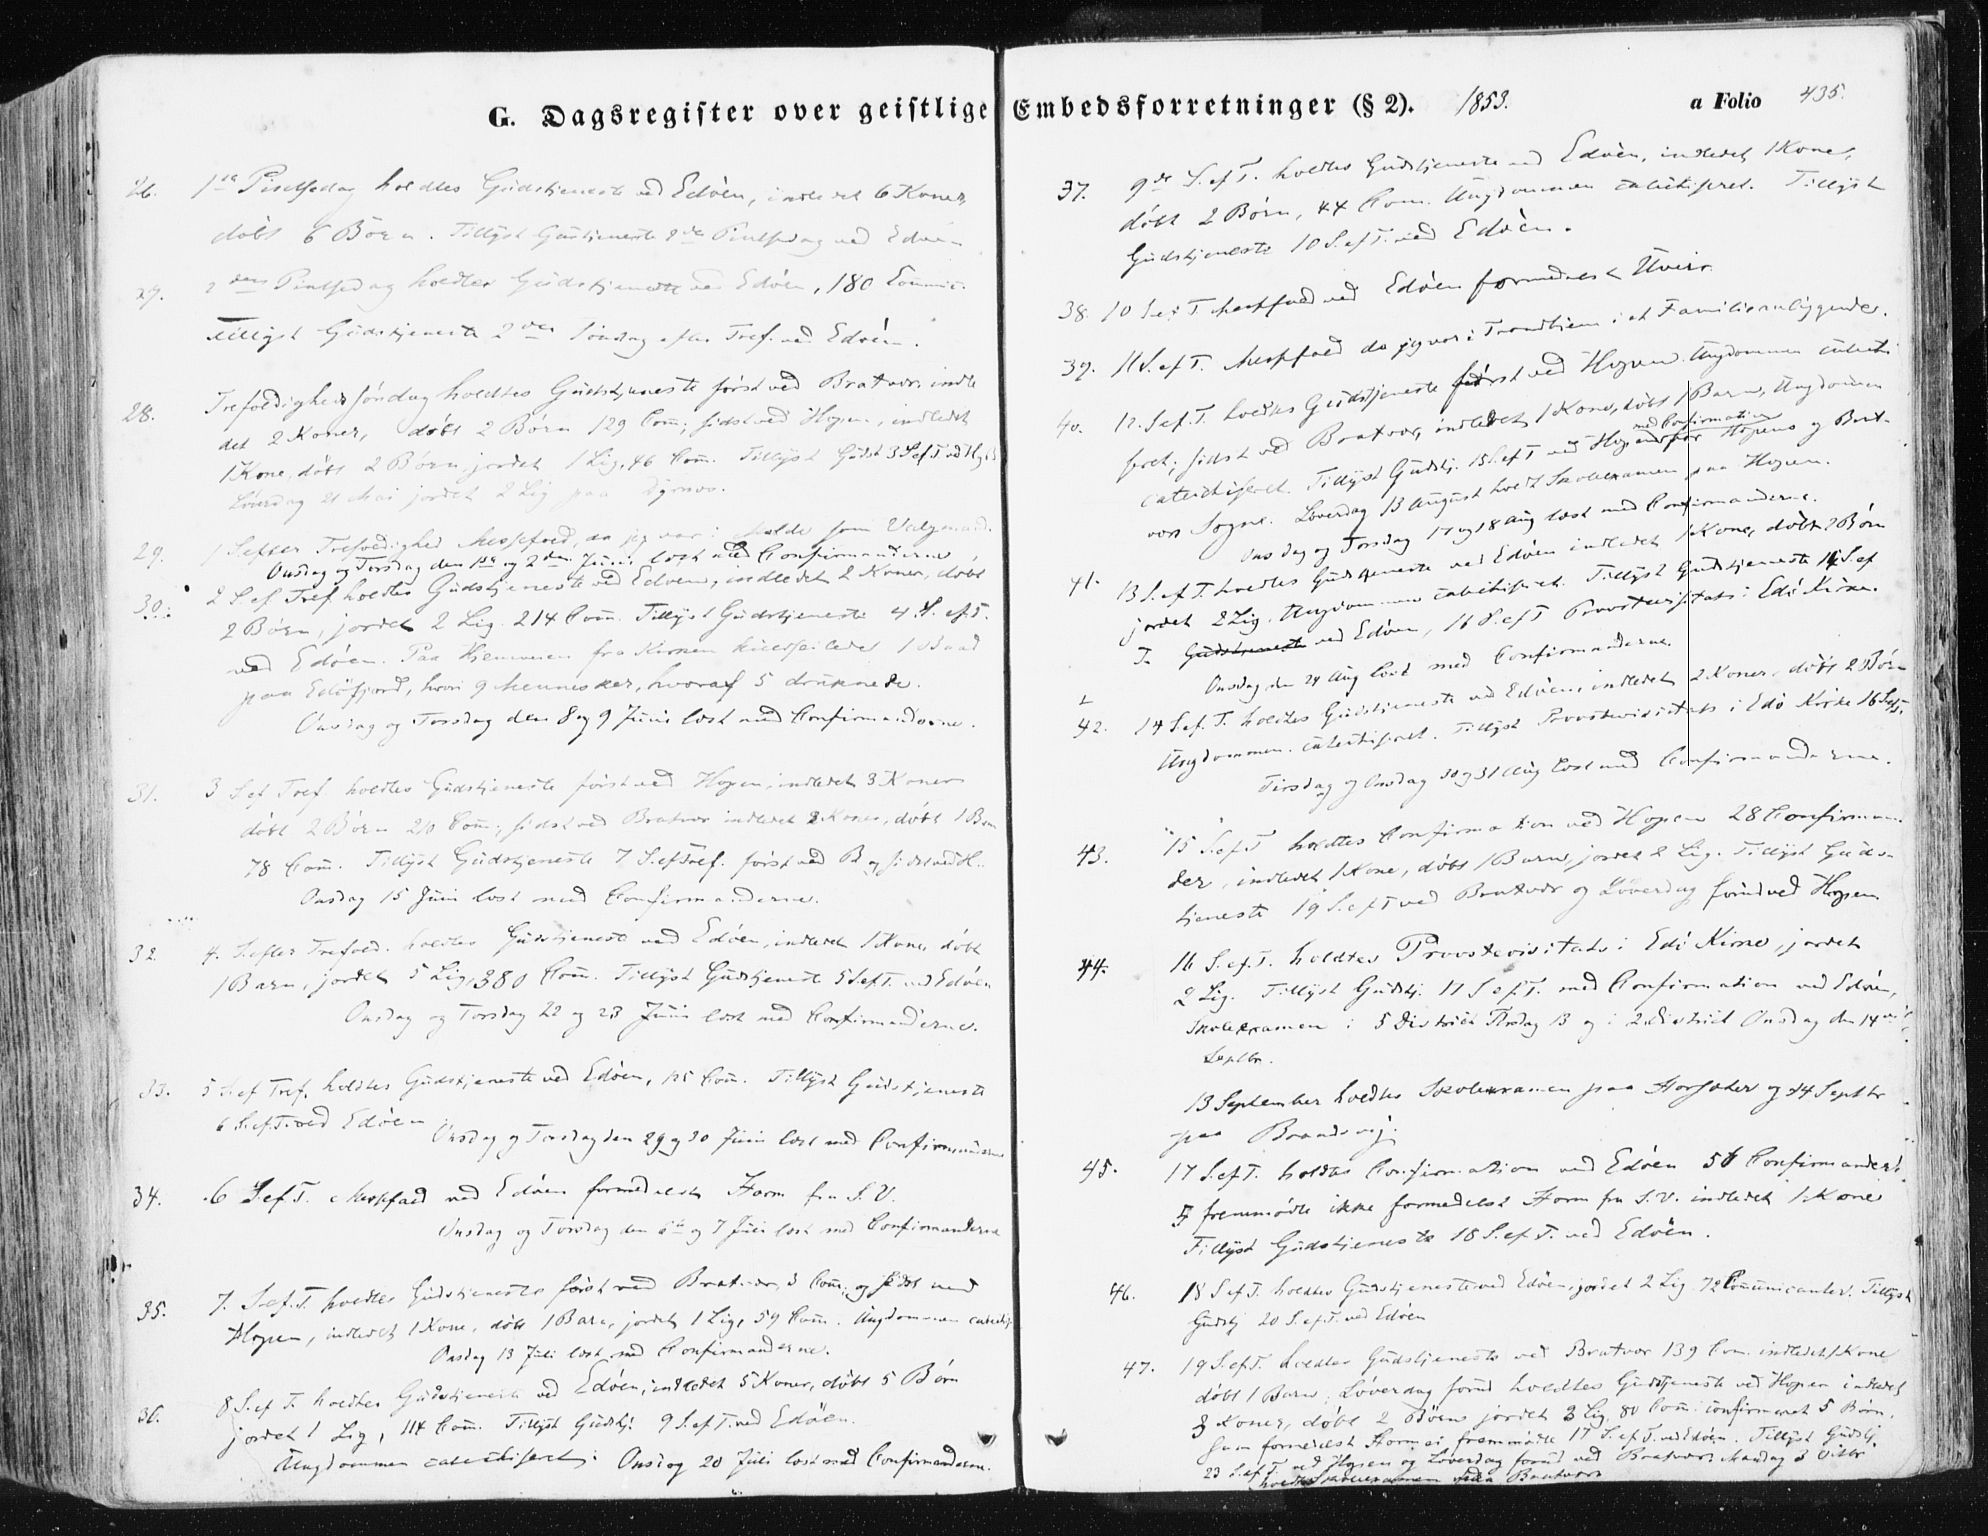 G. Dagsregister over geistlige Embedsforretninger (§ 2). 1853. a Folio 435.
26. 1ste Pintsedag holdtes Gudstjeneste ved Edöen, indledet 6 Koner,
döbt 6 Börn. Tillyst Gudstjeneste 2den Pintsedag ved Edöen
27. 2den Pintsedag holdtes Gudstjeneste ved Edöen, 180 Commic.
Tillyst Gudstjeneste 2den Söndag efter Tref. ved Edöen.
28. Trefoldighedssöndag holdtes Gudstjeneste först ved Bratvær, indle
det 2 Koner, döbt 2 Börn 129 Com̄; sidst ved Hopen, indledet
1 Kone, döbt 2 Börn, jordet 1 Lig, 46 Com̄. Tillyst Gudst 3 S ef T ved
Löverdag 21 Mai jordet 2 Lig paa
29. 1 S efter Trefoldighed Messefald, da jeg var i Molde som Valgmand.
Onsdag og Torsdag den 1ste og 2den Juni læst med Confirmanderne,
30. 2 S. ef Tref. holdtes Gudstjeneste ved Edöen, indledet 2 Koner, döbt
2 Börn, jordet 2 Lig. 214 Com̄. Tillyst Gudstjeneste 4 S. ef. T.
ved Edöen. Paa Hjemveien fra Kirken kuldseiledes 1 Baad
paa Edöfjord, hvori 9 Mennesker, hvoraf 5 druknede.
Onsdag og Torsdag den 8 og 9 Juni læst med Confirmanderne.
31. 3 S ef Tref. holdtes Gudstjeneste först ved Hopen, indledet 3 Koner
döbt 2 Börn 210 Com̄; sidst ved Bratvær indledet 2 Koner, döbt 1 Barn
78 Com̄. Tillyst Gudstjeneste 7 S. ef Tref. först ved B og sidst ved H.
Onsdag 15 Juni læst med Confirmanderne.
32. 4. S. efter Trefold. holdtes Gudstjeneste ved Edöen, indledet 1 Kone, döbt
1 Barn, jordet 5 Lig, 380 Com̄. Tillyst Gudstjeneste 5 S. ef T. ved Edöen
Onsdag og Torsdag 22 og 23 Juni læst med Confirmanderne.
33. 5 S. ef Tref. holdtes Gudstjeneste ved Edöen, 125 Com̄. Tillyst Gudstjeneste
6 S. ef T. ved Edöen
Onsdag og Torsdag den 29 og 30 Juni læst med Confirmanderne
34. 6 S. ef T. Messefald ved Edöen formedelst Storm fra S. V.
Onsdag og Torsdag den 6te og 7 Juli læst med Confirmanderne
35. 7. S. ef. T. holdtes Gudstjeneste först ved Bratvær, 3 Com̄; og sidst ved
Hopen, indledet 1 Kone, döbt 1 Barn, jordet 1 Lig, 59 Com̄. Ungdommen
Onsdag 13 Juli læst med Confirmanderne.
36. 8 S. ef T. holdtes Gudstjeneste ved Edöen; indledet 5 Koner, döbt 5 Börn
jordet 1 Lig, 114 Com̄. Tillyst Gudstj. 9 S. ef T. ved Edöen.
Ungdommen catechiseret. Onsdag 20 Juli læst med Confirmanderne.
37. 9de S. ef T. holdtes Gudstjeneste ved Edöen, indledet 1 Kone,
döbt 2 Börn, 44 Com. Ungdommen catechiseret. Tillyst
Gudstjeneste 10 S. ef T. ved Edöen.
38. 10 S ef T Messefald ved Edöen formedelst Uveir.
39. 11 S. ef T. Messefald da jeg var i Trondhiem i et Familieanliggende.
40. 12. S. ef. T. holdtes Gudstjeneste först ved Hopen. Ungdommen catechi
seret; sidst ved Bratvær, indledet 1 Kone, döbt 1 Barn, Ungdommen
catechiseret. Tillyst Gudstj. 15 S. ef T ved Hopen med Confirmation for Hopens og Brat-
vær Sogne. Löverdag 13 August holdt Skoleexamen paa Hopen.
Onsdag og Torsdag 17 og 18 Aug læst med Confirmanderne.
41. 13 S. ef. T. holdtes Gudstjeneste ved Edöen indledet 1 Kone, döbt 2 Börn
jordet 2 Lig. Ungdommen catechiseret. Tillyst Gudstjeneste 14 S. ef
T. Gudstjeneste ved Edöen, 16 S. ef T Provstevisitats i Edö Kirke.
Onsdag den 24 Aug læst med Confirmanderne.
42. 14 S. ef. T. holdtes Gudstjeneste ved Edöen, indledet 2 Koner, döbt 2 Börn
Ungdommen catechiseret. Tillyst Provstevisitats i Edö Kirke 16 S ef T.
Tirsdag og Onsdag 30 og 31 Aug læst med Confirmanderne.
43. 15 S. ef T holdtes Confirmation ved Hopen 28 Confirman-
der, indledet 1 Kone, döbt 1 Barn, jordet 2 Lig. Tillyst Guds-
tjeneste 19 S. ef T ved Bratvær og Löverdag forud ved Hopen
44. 16 S. ef. T. holdtes Provstevisitats i Edö Kirke, jordet
2 Lig. Tillyst Gudstj. 17 S ef. T. med Confirmation ved Edöen,
Skoleexamen i 5 District Tirsdag 13 og i 2 District Onsdag den 14de
Septbr.
13 September holdtes Skoleexamen paa og 14 Septbr
paa
45. 17 S. ef T. holdtes Confirmation ved Edöen 56 Confirmander.
5 fremmödte ikke formedelst Storm fra S. V. indledet 1 Kone
Tillyst Gudstjeneste 18 S. ef T. ved Edöen.
46. 18 S ef T. holdtes Gudstjeneste ved Edöen, jordet 2 Lig. 72 Communicanter. Tillyst
Gudstj 20 S. ef T. ved Edöen
47. 19 S. ef T. holdtes Gudstjeneste ved Bratvær 139 Com. indledet 1 Kone
döbt 1 Barn; Löverdag forud holdtes Gudstjeneste ved Hopen indledet
3 Koner, döbt 2 Börn jordet 3 Lig, 80 Com̄: confirmeret 5 Börn,
som formedelst Storm ei fremmödte 17 S. ef T. ved Edöen. Tillyst Gudstj.
23 S. ef T. ved Hopen og Löverdag forud ved Bratvær. Mandag 3 Octbr
holdtes Skoleexamen paa Bratvær